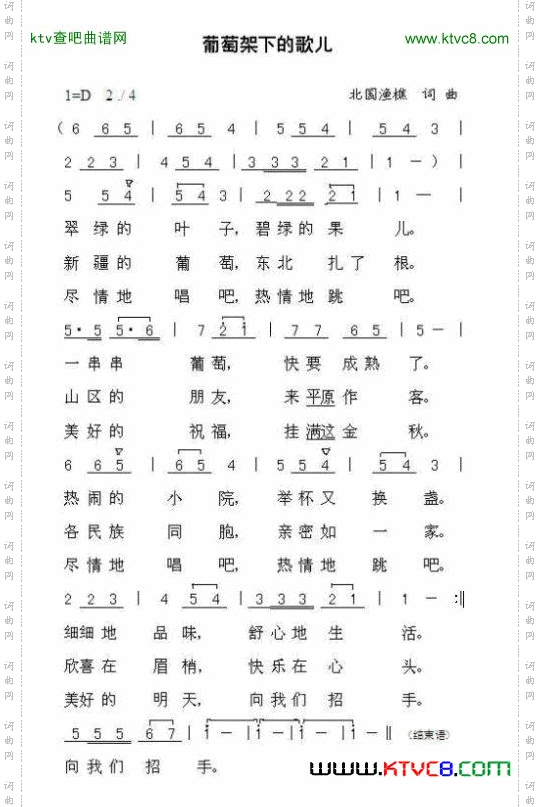 ktv查吧曲谱网
www.ktvc8.com
葡萄架下的歌儿
1=D 2/4
北国渔樵 词 曲
( 6 6 5 | 6 5 4 | 5 5 4 | 5 4 3 |
2 2 3 | 4 5 4 | 3 3 3 2 1 | 1 － ) |
5 5 4 | 5 4 3 | 2 2 2 2 1 | 1 － |
翠 绿 的 叶 子, 碧 绿 的 果 儿。
新 疆 的 葡 萄, 东 北 扎 了 根。
尽 情 地 唱 吧, 热 情 地 跳 吧。
5 · 5 5 · 6 | 7 2 i | 7 7 6 5 | 5 － |
一 串 串 葡 萄, 快 要 成 熟 了。
山 区 的 朋 友, 来 平原 作 客。
美 好 的 祝 福, 挂 满这 金 秋。
6 6 5 | 6 5 4 | 5 5 4 | 5 4 3 |
热 闹 的 小 院, 举 杯 又 换 盏。
各 民 族 同 胞, 亲 密 如 一 家。
尽 情 地 唱 吧, 热 情 地 跳 吧。
2 2 3 | 4 5 4 | 3 3 3 2 1 | 1 － :‖
细细 地 品 味, 舒 心 地 生 活。
欣 喜 在 眉 梢, 快 乐 在 心 头。
美 好 的 明 天, 向 我 们 招 手。
5 5 5 6 7 | i － | i － | i － | i － ‖ (结束语)
向 我 们 招 手。
www.KTVC8.com